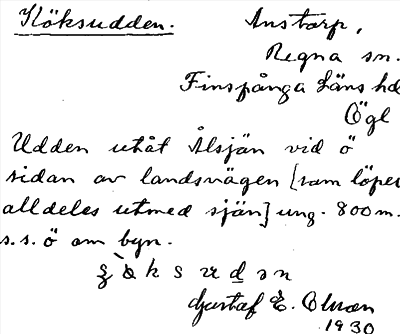 Köksudden.
Anstorp,
Regna sn.
Finspånga Läns hd
Ögl
Udden utåt Ålsjön vid ö
sidan av landsvägen [som löper
alldeles utmed sjön] ung. 800 m.
s.s.ö om byn.
Gustaf E. Olsson
1930